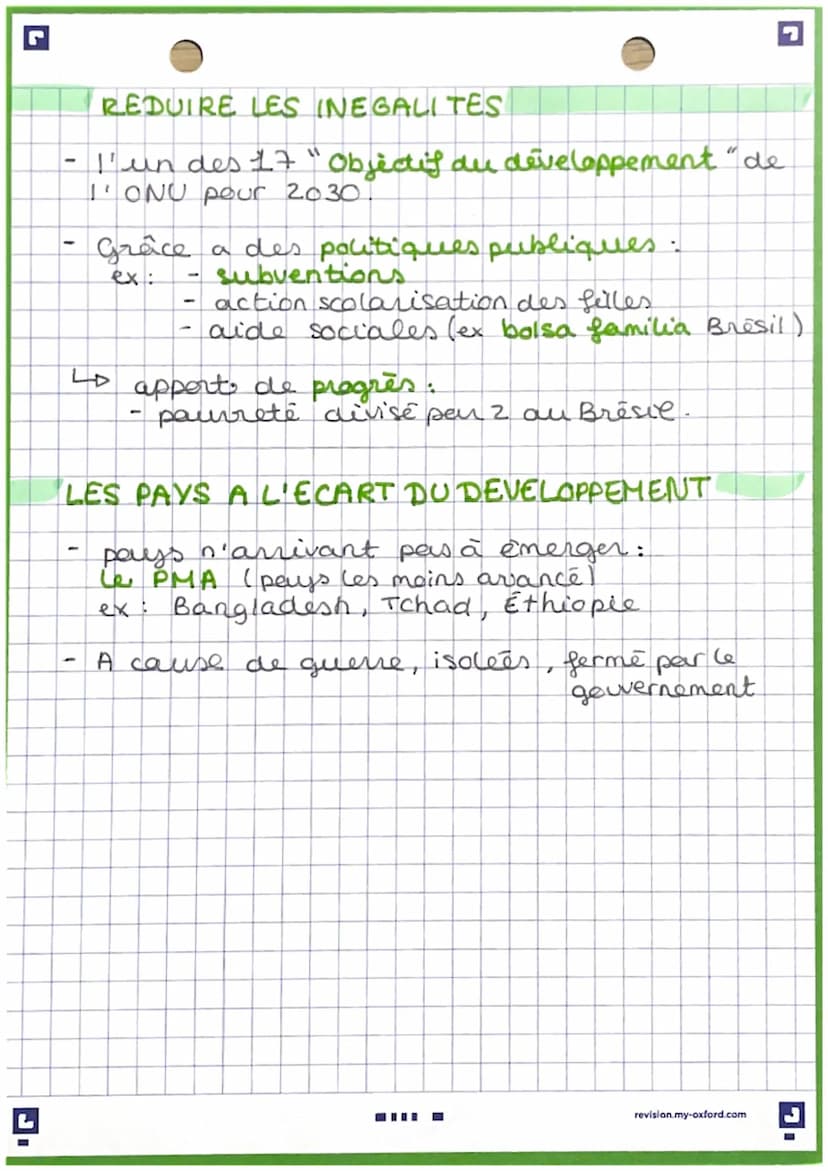 REDUIRE LES INEGALITES
- l'un des 17 "Objectif du développement" de
l'ONU pour 2030.
- Grâce a des politiques publiques :
ex : - subventions
- action scolarisation des filles
- aide sociales (ex bolsa familia Brésil)
↳ apporte de progrès :
- pauvreté divisé par 2 au Brésil.
LES PAYS A L'ECART DU DEVELOPPEMENT
- pays n'arrivant pas à émerger :
le PMA (pays les moins avancé)
ex : Bangladesh, Tchad, Éthiopie
- A cause de guerre, isolées, fermé par le
gouvernement
revision.my-oxford.com